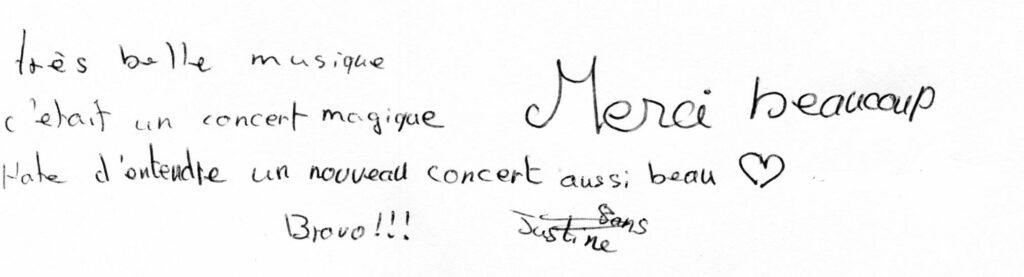 très belle musique
c'était un concert magique
Merci beaucoup
Hate d'entendre un nouveau concert aussi beau ♡
Bravo!!!
Justine
8ans